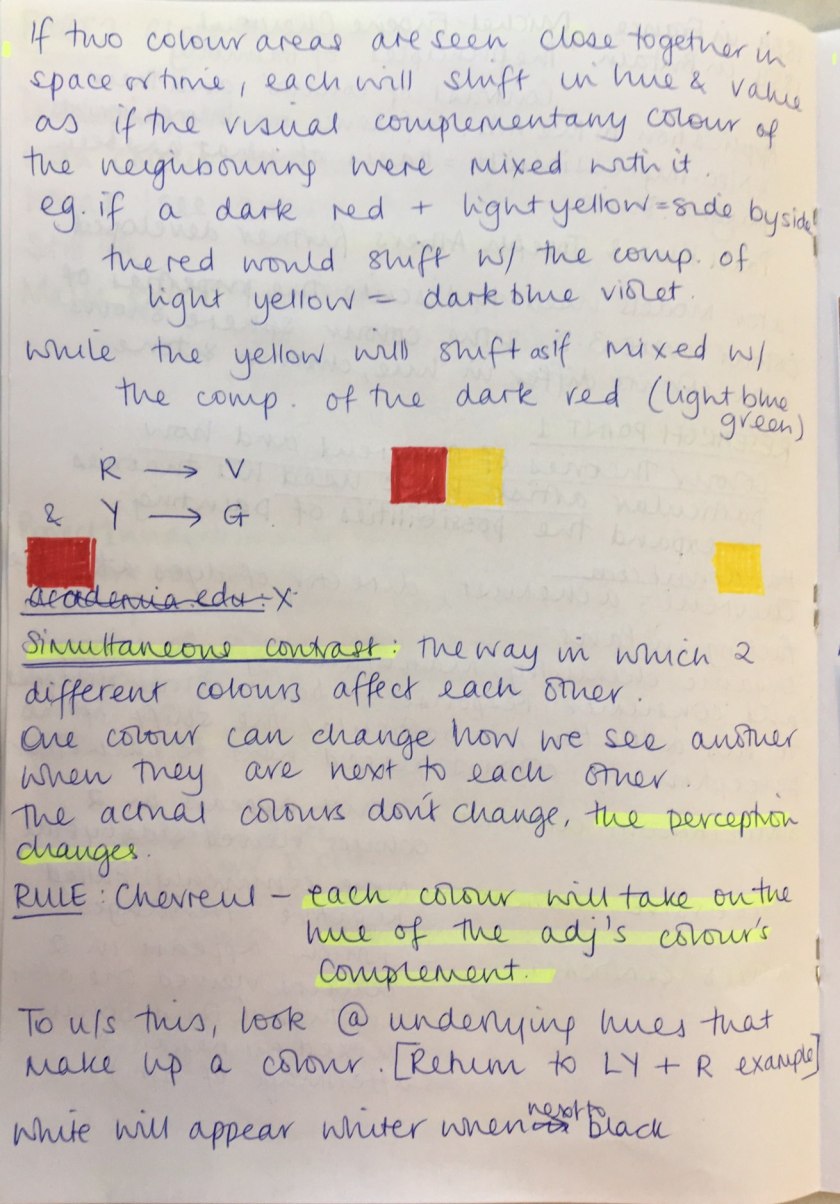 If two colour areas are seen close together in
space or time, each will shift in hue & value
as if the visual complementary colour of
the neighbouring were mixed with it.
eg. if a dark red + light yellow = side by side
the red would shift w/ the comp. of
light yellow = dark blue violet.
while the yellow will shift as if mixed w/
the comp. of the dark red (light blue
green)
R → V
& Y → G.
academia.edu. X
Simultaneous contrast: the way in which 2
different colours affect each other.
One colour can change how we see another
when they are next to each other.
The actual colours don't change, the perception
changes.
RULE: Chevreul – each colour will take on the
hue of the adj's colour's
complement.
To u/s this, look @ underlying hues that
make up a colour. [Return to LY + R example]
next to
White will appear whiter when black